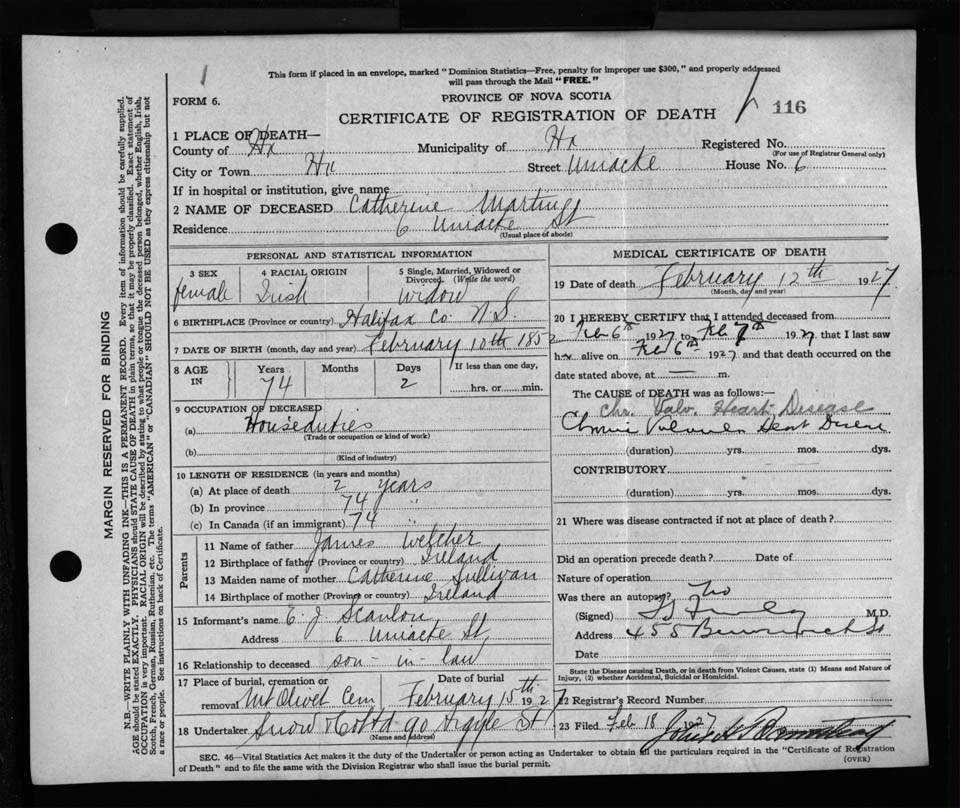 1
This form if placed in an envelope, marked "Dominion Statistics—Free, penalty for improper use $300," and properly addressed
will pass through the Mail "FREE."
FORM 6.
PROVINCE OF NOVA SCOTIA
CERTIFICATE OF REGISTRATION OF DEATH
116
1 PLACE OF DEATH—
County of Hx Municipality of Hx Registered No.
(For use of Registrar General only)
City or Town Hx Street Uniacke House No. 6
If in hospital or institution, give name
2 NAME OF DECEASED Catherine Martin
Residence 6 Uniacke St
(Usual place of abode)
PERSONAL AND STATISTICAL INFORMATION
3 SEX 4 RACIAL ORIGIN 5 Single, Married, Widowed or
Divorced. (Write the word)
female Irish Widow
6 BIRTHPLACE (Province or country) Halifax Co. N.S.
7 DATE OF BIRTH (month, day and year) February 10th 1852
8 AGE IN Years Months Days If less than one day,
74 2 hrs. or min.
9 OCCUPATION OF DECEASED
(a) Houseduties
(Trade or occupation or kind of work)
(b)
(Kind of industry)
10 LENGTH OF RESIDENCE (in years and months)
(a) At place of death 2 years
(b) In province 74
(c) In Canada (if an immigrant) 74
Parents
11 Name of father James Welcher
12 Birthplace of father (Province or country) Ireland
13 Maiden name of mother Catherine Sullivan
14 Birthplace of mother (Province or country) Ireland
15 Informant's name E. J. Scanlon
Address 6 Uniacke St
16 Relationship to deceased son-in-law
17 Place of burial, cremation or Date of burial
removal Mt Olivet Cem February 15th 1927
18 Undertaker Snow & Co Ltd 90 Argyle St
(Name and address)
MEDICAL CERTIFICATE OF DEATH
19 Date of death February 12th 1927
(Month, day and year)
20 I HEREBY CERTIFY that I attended deceased from
Feb 6th 1927 to Feb 7th 1927 that I last saw
h alive on Feb 6th 1927 and that death occurred on the
date stated above, at — m.
The CAUSE of DEATH was as follows:
Chr. Valv. Heart Disease
Chronic Valvular Heart Disease
(duration) yrs. mos. dys.
CONTRIBUTORY
(duration) yrs. mos. dys.
21 Where was disease contracted if not at place of death?
Did an operation precede death? Date of
Nature of operation
Was there an autopsy? No
(Signed) M.D.
Address 455
Date
State the Disease causing Death, or in death from Violent Causes, state (1) Means and Nature of
Injury, (2) whether Accidental, Suicidal or Homicidal.
22 Registrar's Record Number
23 Filed Feb 18 1927
SEC. 46—Vital Statistics Act makes it the duty of the Undertaker or person acting as Undertaker to obtain all the particulars required in the "Certificate of Registration
of Death" and to file the same with the Division Registrar who shall issue the burial permit.
(OVER)
MARGIN RESERVED FOR BINDING
N.B.—WRITE PLAINLY WITH UNFADING INK—THIS IS A PERMANENT RECORD. Every item of information should be carefully supplied.
AGE should be stated EXACTLY. PHYSICIANS should STATE CAUSE OF DEATH in plain terms, so that it may be properly classified. Exact statement of
OCCUPATION is very important. RACIAL ORIGIN will be described by stating to what people or tongue the deceased person belonged, whether English, Irish,
Scotch, French, German, Russian, Ruthenian, etc. The terms "AMERICAN" or "CANADIAN" SHOULD NOT BE USED as they express citizenship but not
a race or people. See instructions on back of Certificate.